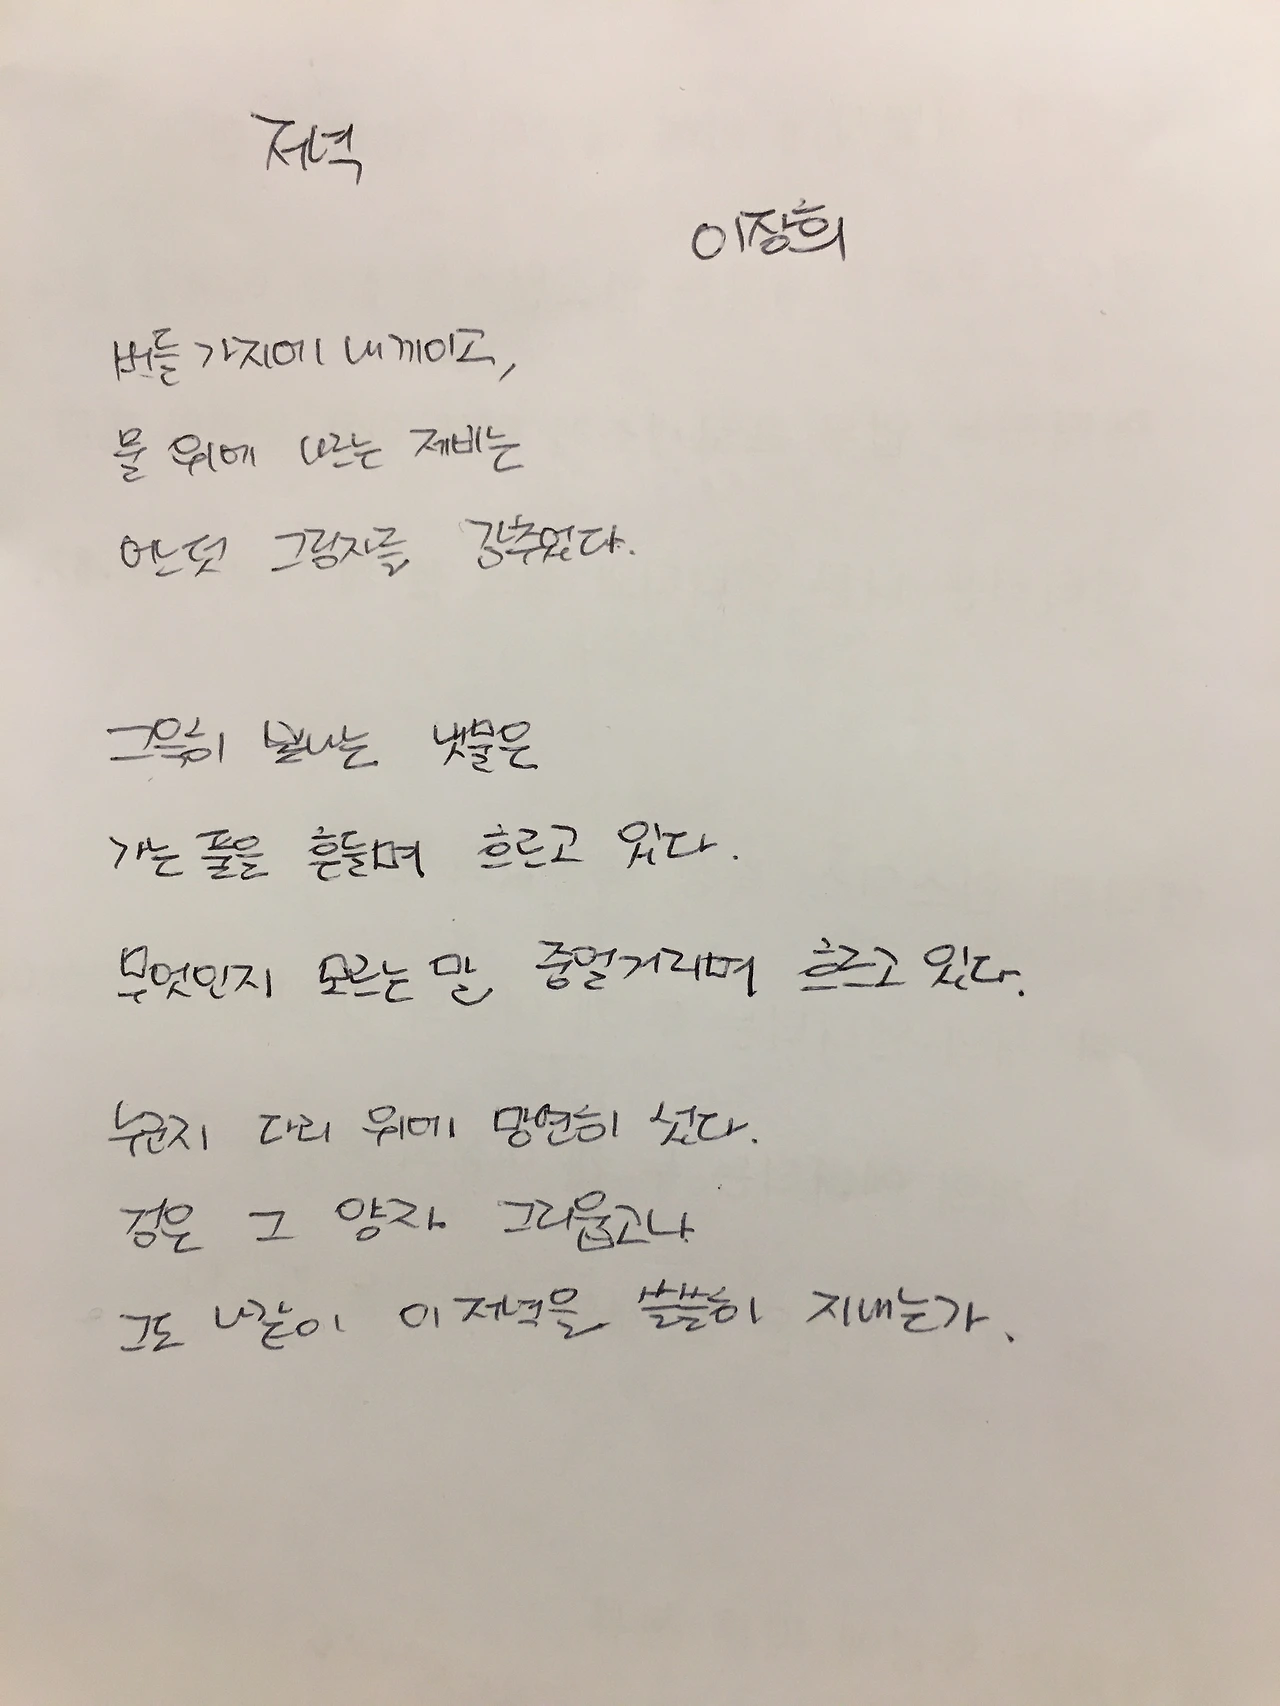 저녁
이장희
버들 가지에 내 끼이고,
물 위에 나르는 제비는
어느덧 그림자를 감추었다.
그윽히 빛나는 냇물은
가는 풀을 흔들며 흐르고 있다.
무엇인지 모르는 말 중얼거리며 흐르고 있다.
누군지 다리 위에 망연히 섰다.
검은 그 양자 그리웁고나
그도 나같이 이 저녁을 쓸쓸히 지내는가.